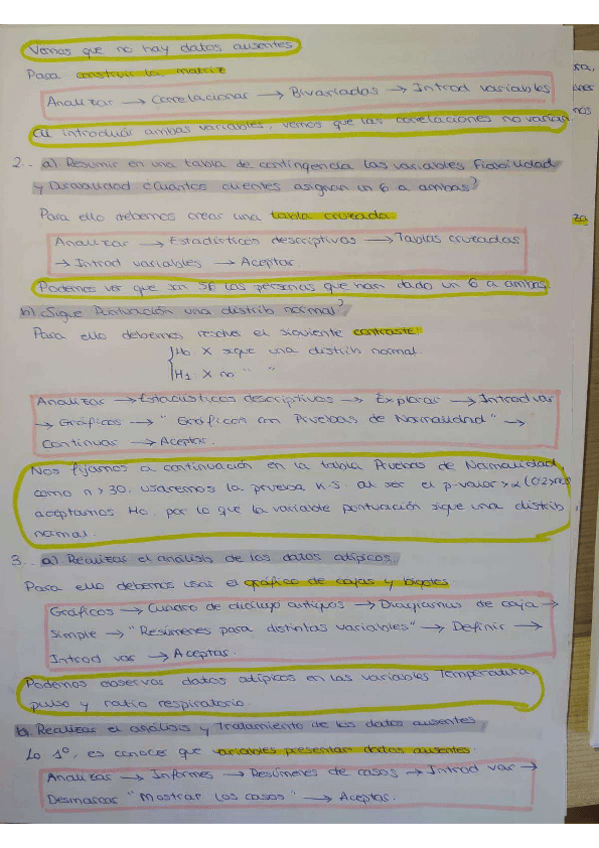 Vemos que no hay datos ausentes
Para construir la matriz
Analizar → Correlacionar → Bivariadas → Introd variables
Al introducir ambas variables, vemos que las correlaciones no varían.
2.. a) Resumir en una tabla de contingencia las variables Fiabilidad
y Durabilidad ¿Cuántos clientes asignan un 6 a ambas?
Para ello debemos crear una tabla cruzada.
Analizar → Estadísticos descriptivos → Tablas cruzadas
→ Introd variables → Aceptar.
Podemos ver que son 56 las personas que han dado un 6 a ambas.
b) ¿Sigue Puntuación una distrib normal?
Para ello debemos resolver el siguiente contraste:
H0 X sigue una distrib normal.
H1 X no " "
Analizar → Estadísticos descriptivos → Explorar → Introd var
→ Gráficos → "Gráficos con Pruebas de Normalidad" →
Continuar → Aceptar.
Nos fijamos a continuación en la tabla Pruebas de Normalidad,
como n > 30, usaremos la prueba K.S. al ser el p-valor > α
aceptamos H0, por lo que la variable puntuación sigue una distrib
normal.
3.. a) Realizar el análisis de los datos atípicos.
Para ello debemos usar el gráfico de cajas y bigotes
Gráficos → Cuadro de diálogo antiguos → Diagramas de caja →
Simple → "Resúmenes para distintas variables" → Definir →
Introd var → Aceptar.
Podemos observar datos atípicos en las variables Temperatura,
pulso y ratio respiratorio.
b. Realizar el análisis y Tratamiento de los datos ausentes
Lo 1º, es conocer que variables presentan datos ausentes.
Analizar → Informes → Resúmenes de casos → Introd var →
Desmarcar "Mostrar los casos" → Aceptar.
za